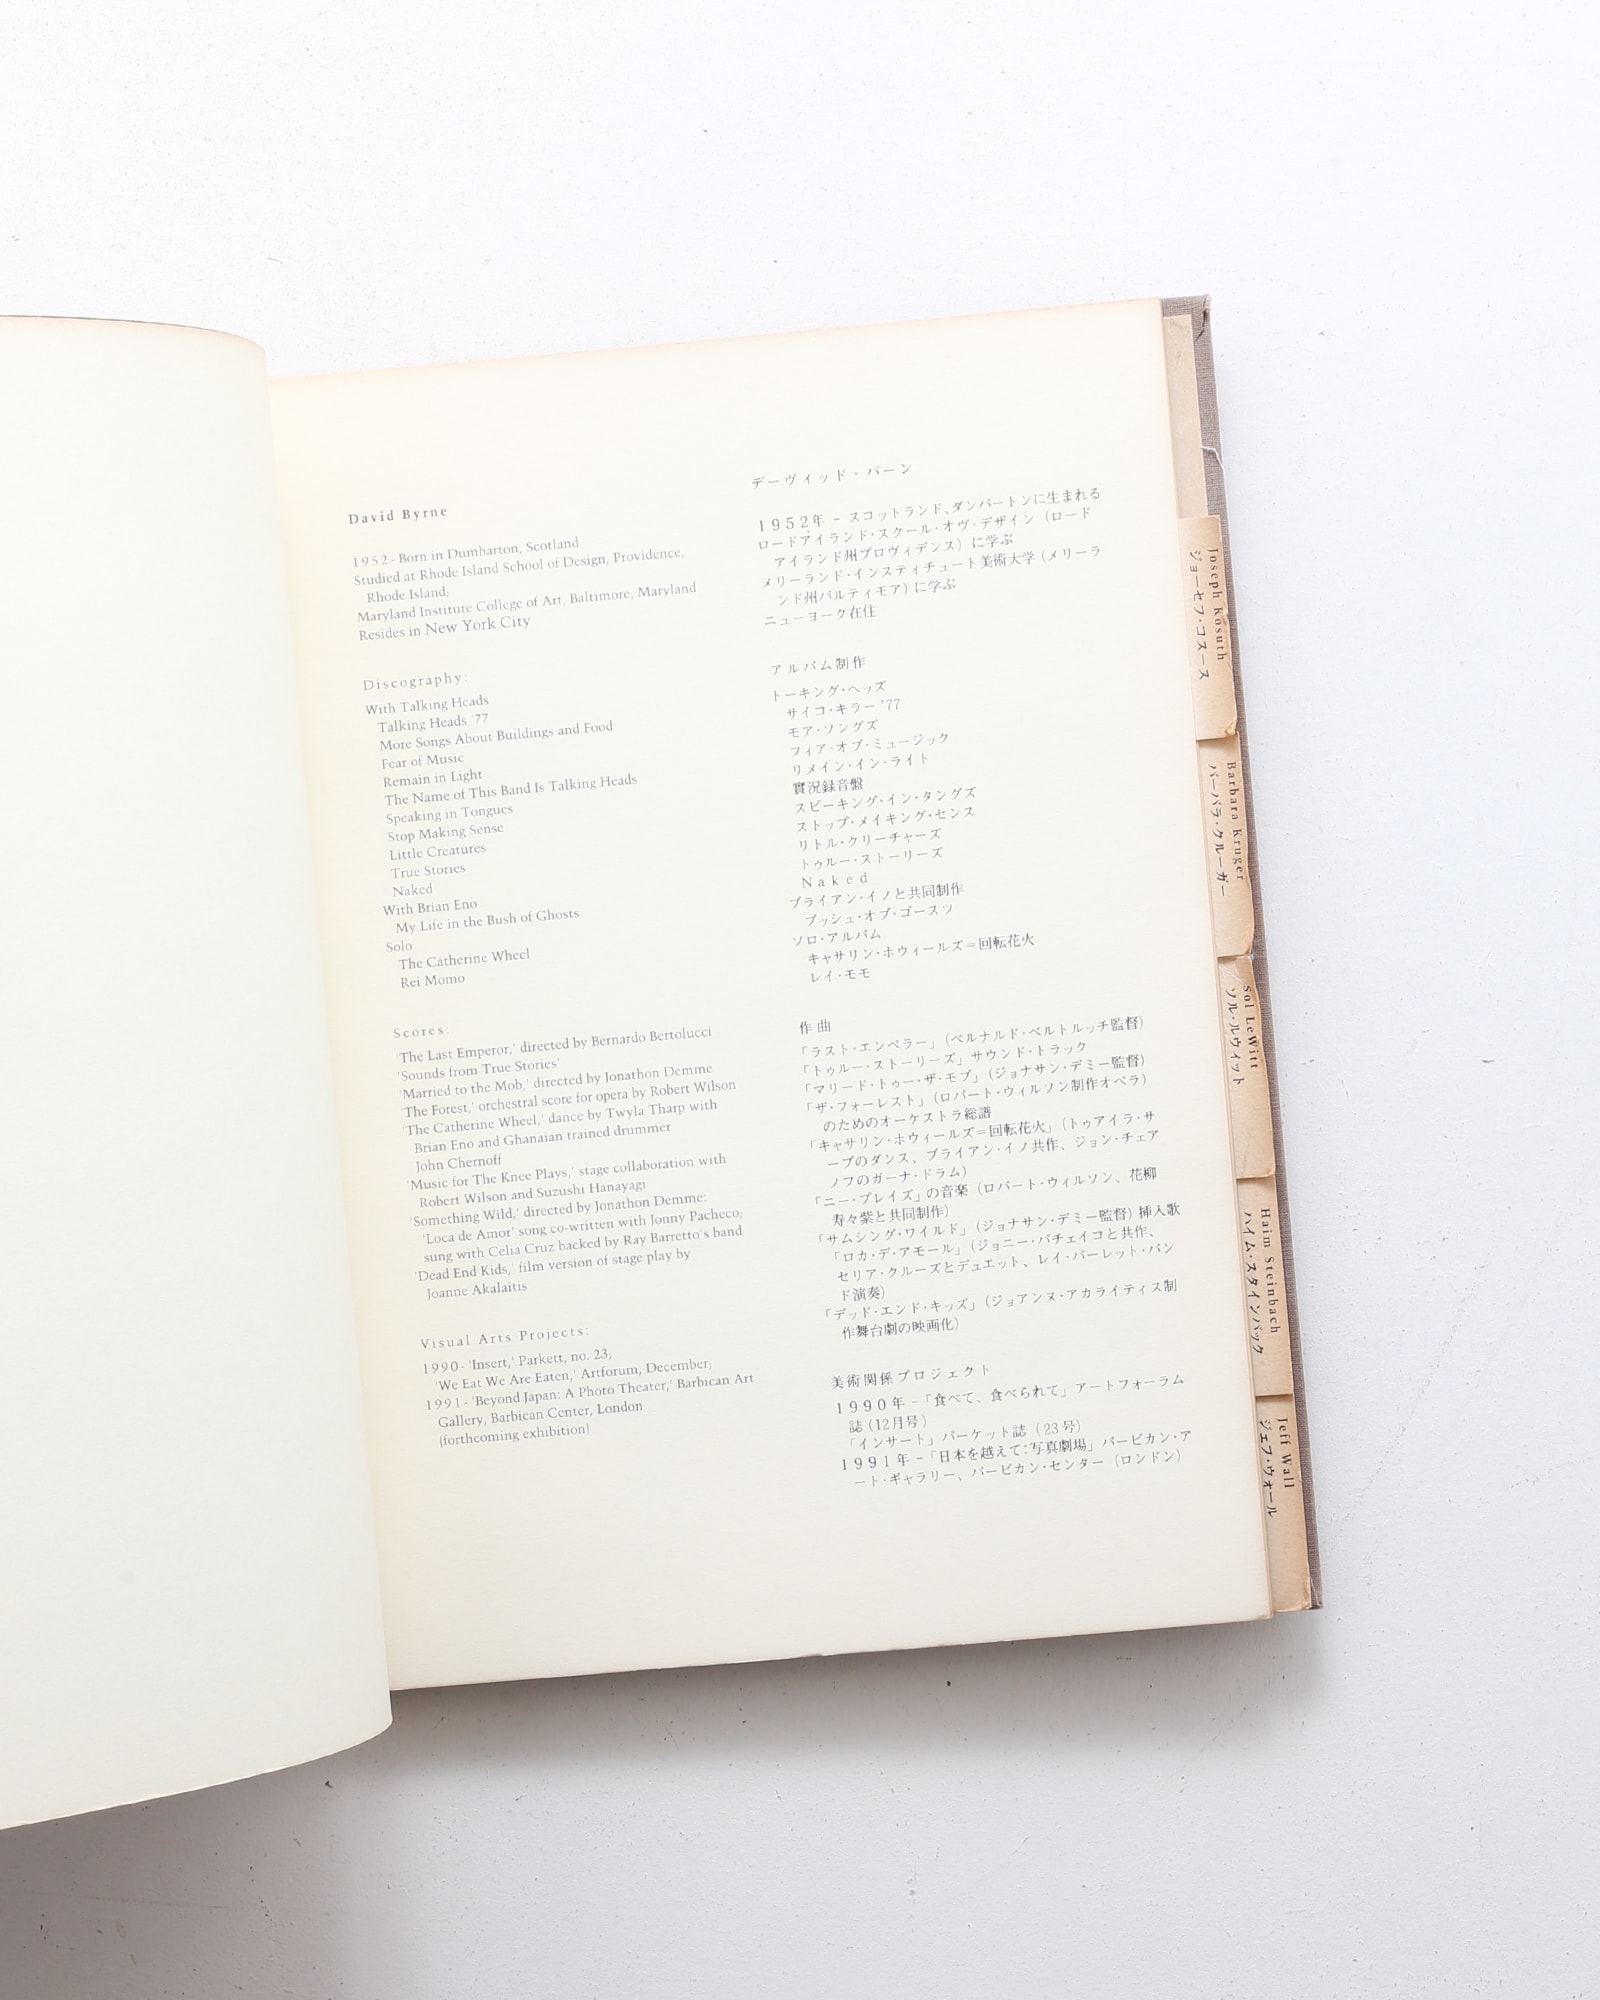 David Byrne
1952- Born in Dumbarton, Scotland
Studied at Rhode Island School of Design, Providence,
Rhode Island;
Maryland Institute College of Art, Baltimore, Maryland
Resides in New York City
Discography:
With Talking Heads
Talking Heads '77
More Songs About Buildings and Food
Fear of Music
Remain in Light
The Name of This Band Is Talking Heads
Speaking in Tongues
Stop Making Sense
Little Creatures
True Stories
Naked
With Brian Eno
My Life in the Bush of Ghosts
Solo
The Catherine Wheel
Rei Momo
Scores:
'The Last Emperor,' directed by Bernardo Bertolucci
'Sounds from True Stories'
'Married to the Mob,' directed by Jonathon Demme
'The Forest,' orchestral score for opera by Robert Wilson
'The Catherine Wheel,' dance by Twyla Tharp with
Brian Eno and Ghanaian trained drummer
John Chernoff
'Music for The Knee Plays,' stage collaboration with
Robert Wilson and Suzushi Hanayagi
'Something Wild,' directed by Jonathon Demme:
'Loca de Amor' song co-written with Jonny Pacheco;
sung with Celia Cruz backed by Ray Barretto's band
'Dead End Kids,' film version of stage play by
Joanne Akalaitis
Visual Arts Projects:
1990- 'Insert,' Parkett, no. 23;
'We Eat We Are Eaten,' Artforum, December;
1991- 'Beyond Japan: A Photo Theater,' Barbican Art
Gallery, Barbican Center, London
(forthcoming exhibition)
デーヴィッド・バーン
1952年 – スコットランド、ダンバートンに生まれる
ロードアイランド・スクール・オヴ・デザイン（ロード
アイランド州プロヴィデンス）に学ぶ
メリーランド・インスティチュート美術大学（メリーラ
ンド州バルティモア）に学ぶ
ニューヨーク在住
アルバム制作
トーキング・ヘッズ
サイコ・キラー'77
モア・ソングズ
フィア・オブ・ミュージック
リメイン・イン・ライト
實況録音盤
スピーキング・イン・タングズ
ストップ・メイキング・センス
リトル・クリーチャーズ
トゥルー・ストーリーズ
Naked
ブライアン・イノと共同制作
ブッシュ・オブ・ゴースツ
ソロ・アルバム
キャサリン・ホウィールズ＝回転花火
レイ・モモ
作曲
「ラスト・エンペラー」（ベルナルド・ベルトルッチ監督）
「トゥルー・ストーリーズ」サウンド・トラック
「マリード・トゥー・ザ・モブ」（ジョナサン・デミー監督）
「ザ・フォーレスト」（ロバート・ウィルソン制作オペラ）
のためのオーケストラ総譜
「キャサリン・ホウィールズ＝回転花火」（トゥアイラ・サ
ープのダンス、ブライアン・イノ共作、ジョン・チェア
ノフのガーナ・ドラム）
「ニー・プレイズ」の音楽（ロバート・ウィルソン、花柳
寿々紫と共同制作）
「サムシング・ワイルド」（ジョナサン・デミー監督）挿入歌
「ロカ・デ・アモール」（ジョニー・パチェイコと共作、
セリア・クルーズとデュエット、レイ・バーレット・バン
ド演奏）
「デッド・エンド・キッズ」（ジョアンヌ・アカライティス制
作舞台劇の映画化）
美術関係プロジェクト
1990年 –「食べて、食べられて」アートフォーラム
誌（12月号）
「インサート」パーケット誌（23号）
1991年 –「日本を越えて：写真劇場」バービカン・ア
ート・ギャラリー、バービカン・センター（ロンドン）
Joseph Kosuth
ジョーセフ・コスース
Barbara Kruger
バーバラ・クルーガー
sol LeWitt
ソル・ルウィット
Haim Steinbach
ハイム・スタインバック
Jeff Wall
ジェフ・ウォール